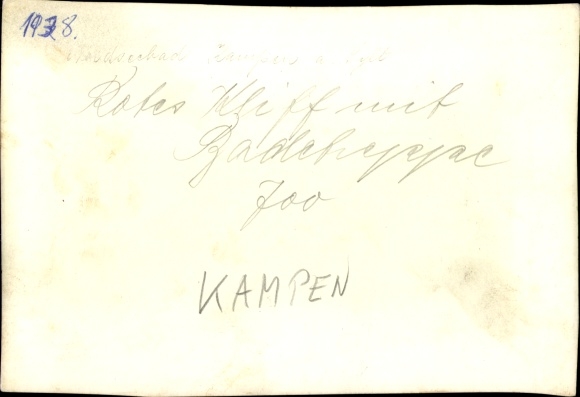 1938.
Nordseebad Kampen a. Sylt
Rotes Kliff mit
Badetreppe
700
KAMPEN